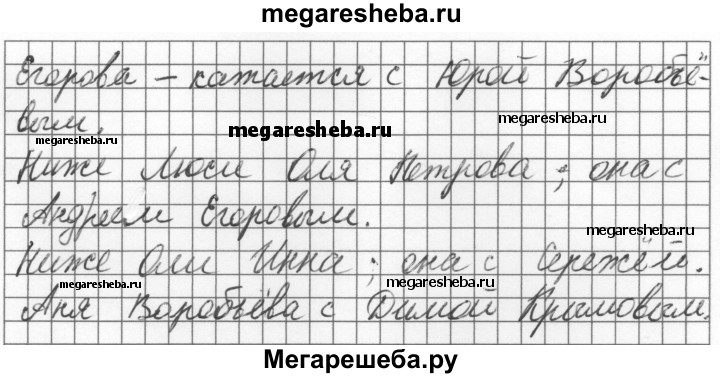 megaresheba.ru
Егорова – катается с Юрой Воробьё-
вым.
megaresheba.ru
megaresheba.ru
megaresheba.ru
Ниже Люси Оля Петрова; она с
Андреем Егоровым.
megaresheba.ru
Ниже Оли Инна; она с Серёжей.
megaresheba.ru
megaresheba.ru
Аня Воробьёва с Димой Крымовым.
Мегарешеба.ру